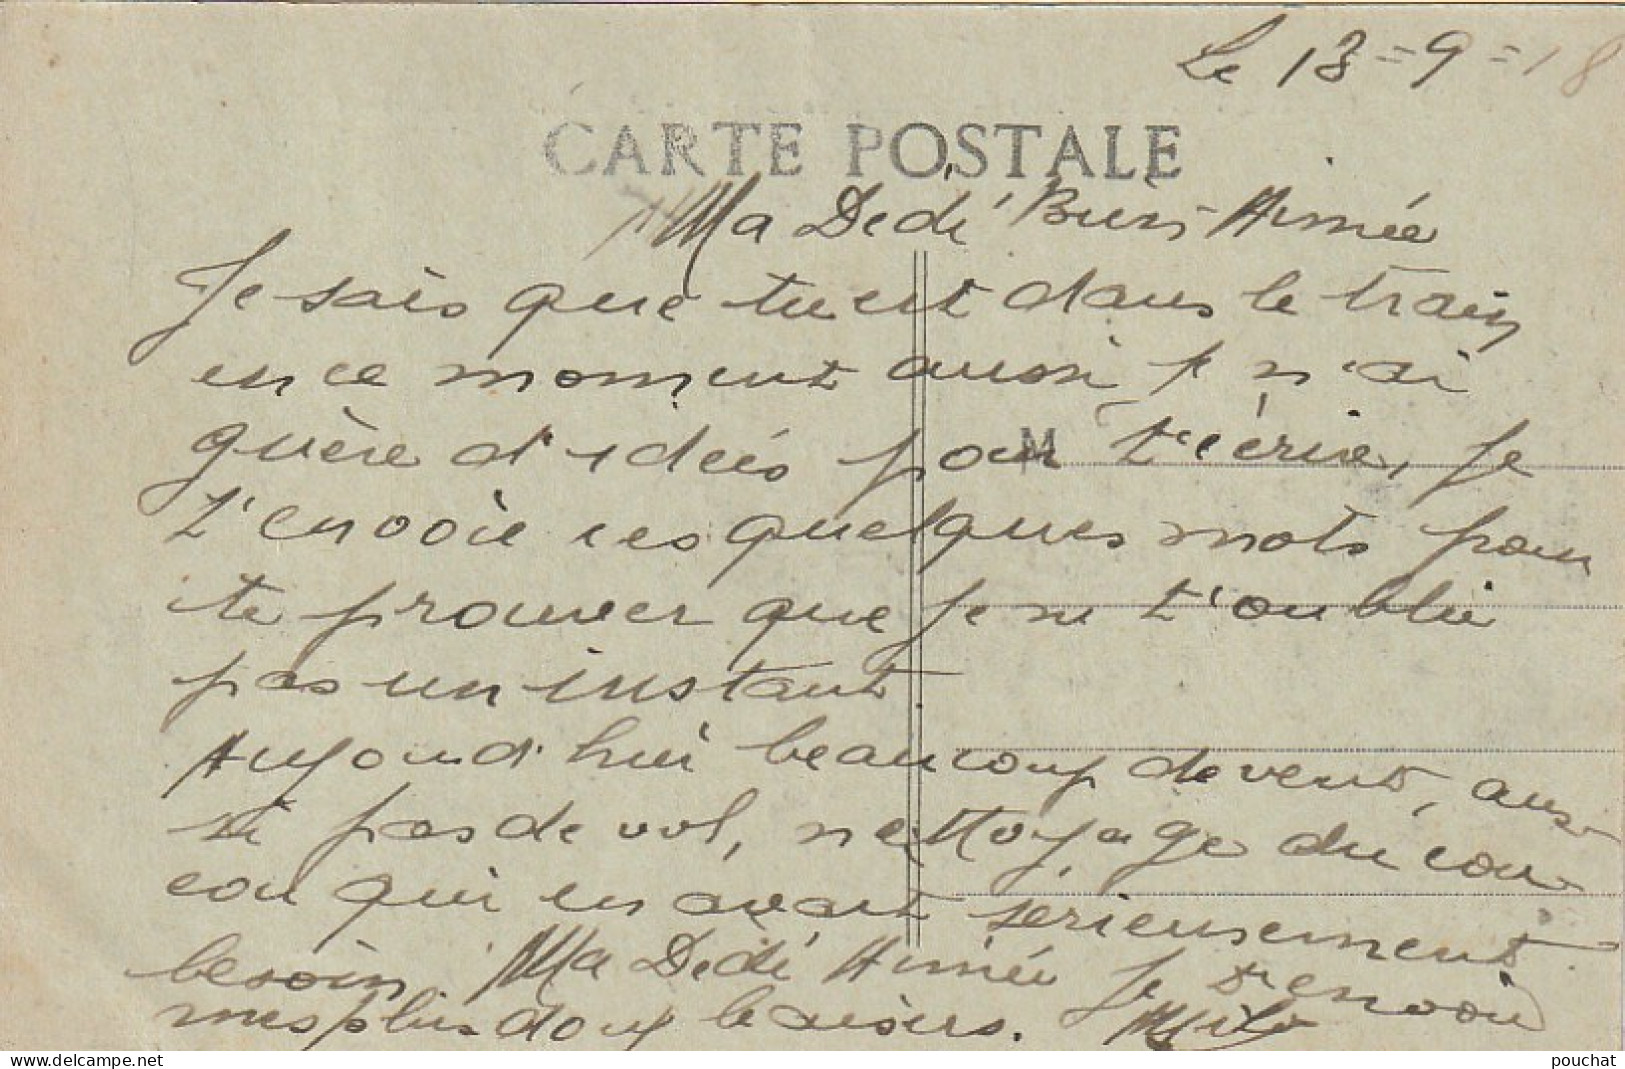 Le 13=9=18
CARTE POSTALE
Ma Dédé Bien-Aimée
Je sais que tu est dans le train
en ce moment aussi je n'ai
guère d'idées pour t'écrire, je
M
t'envoie ces quelques mots pour
te prouver que je ne t'oublie
pas un instant.
Aujourd'hui beaucoup de vent, aus-
si pas de vol, nettoyage du cou-
cou qui en avait sérieusement
besoin. Ma Dédé Aimée je t'envoie
mes plus doux baisers.
pouchat